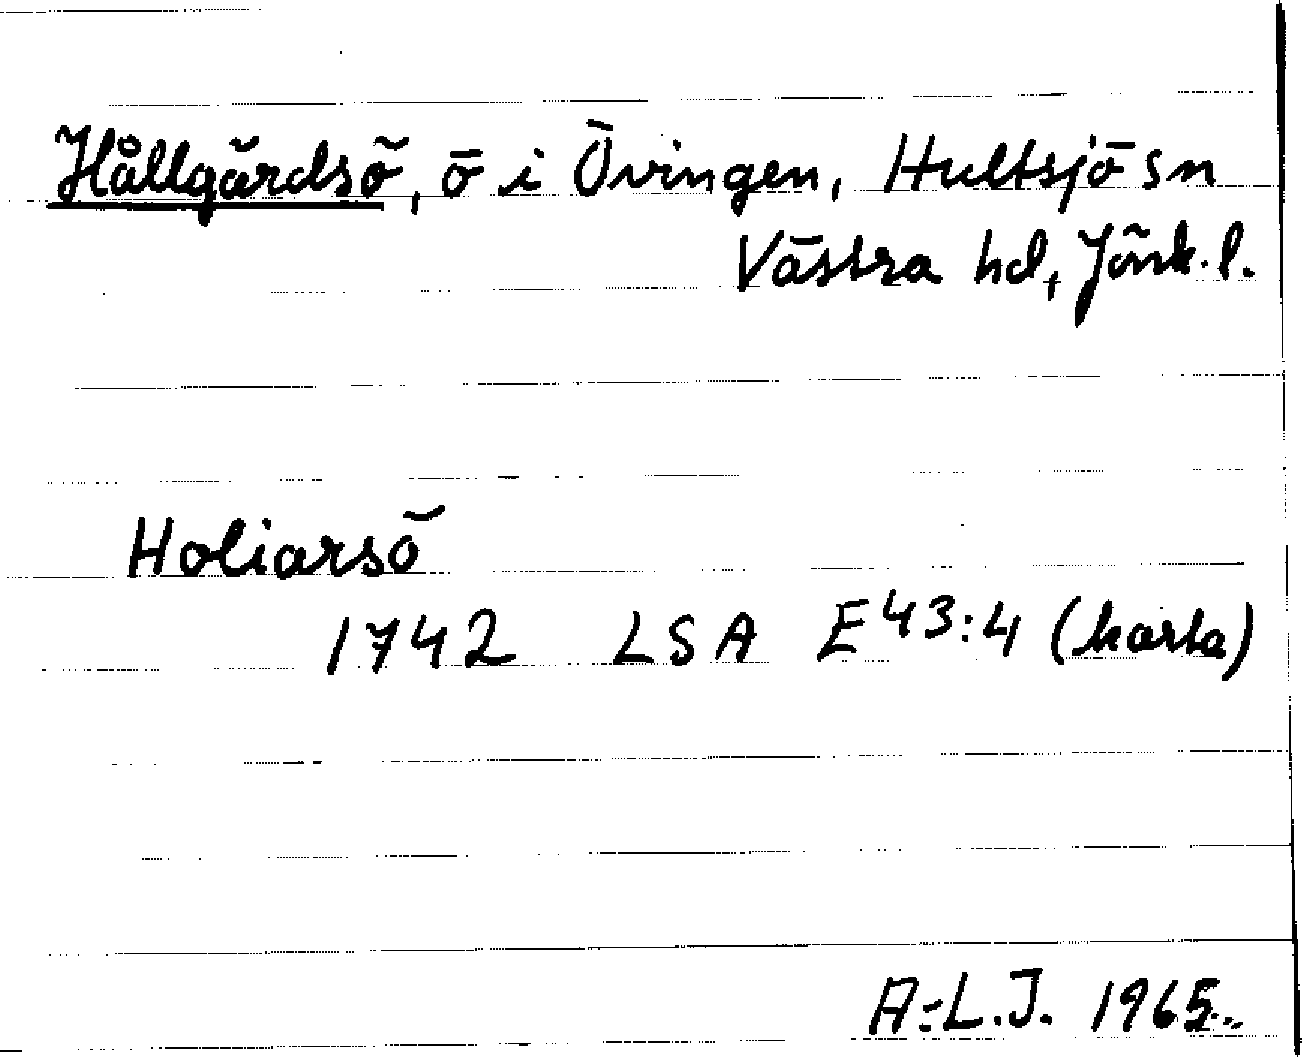 Hållgårdsö, ö i Övingen, Hultsjö sn
Västra hd, Jönk. l.
Holiarsö
1742 LSA E43:4 (karta)
A-L.J. 1965.